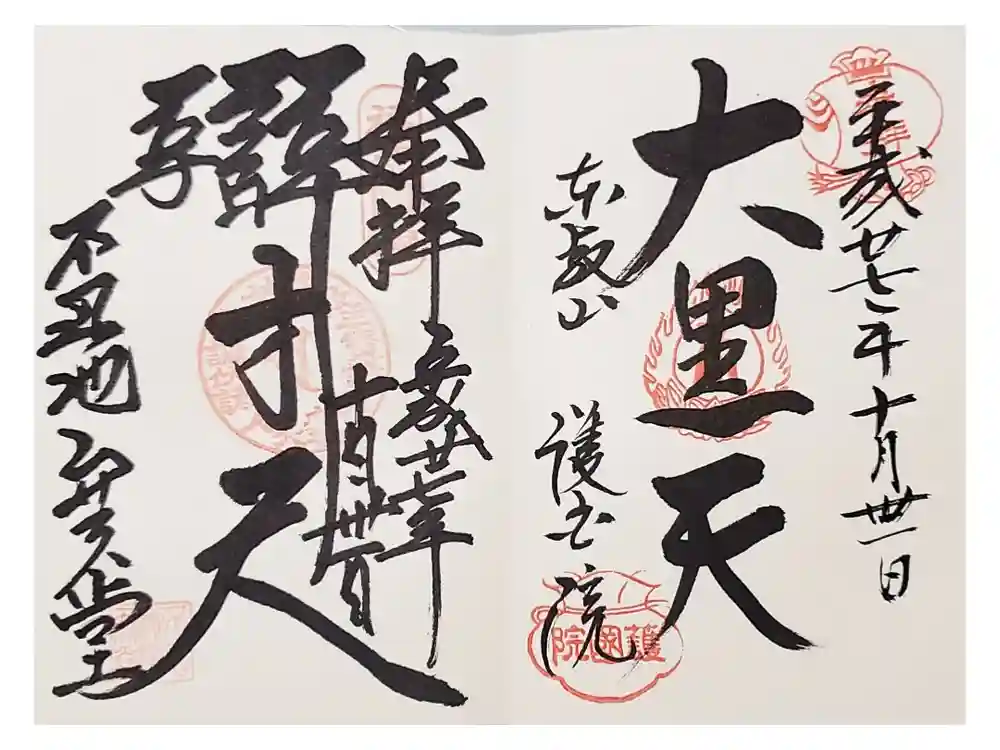 平成廿七年十月卅一日
大黒天
東叡山
護国院
護國院
奉拝
平成廿七年
十月卅一日
辯才天
不忍池
弁天堂